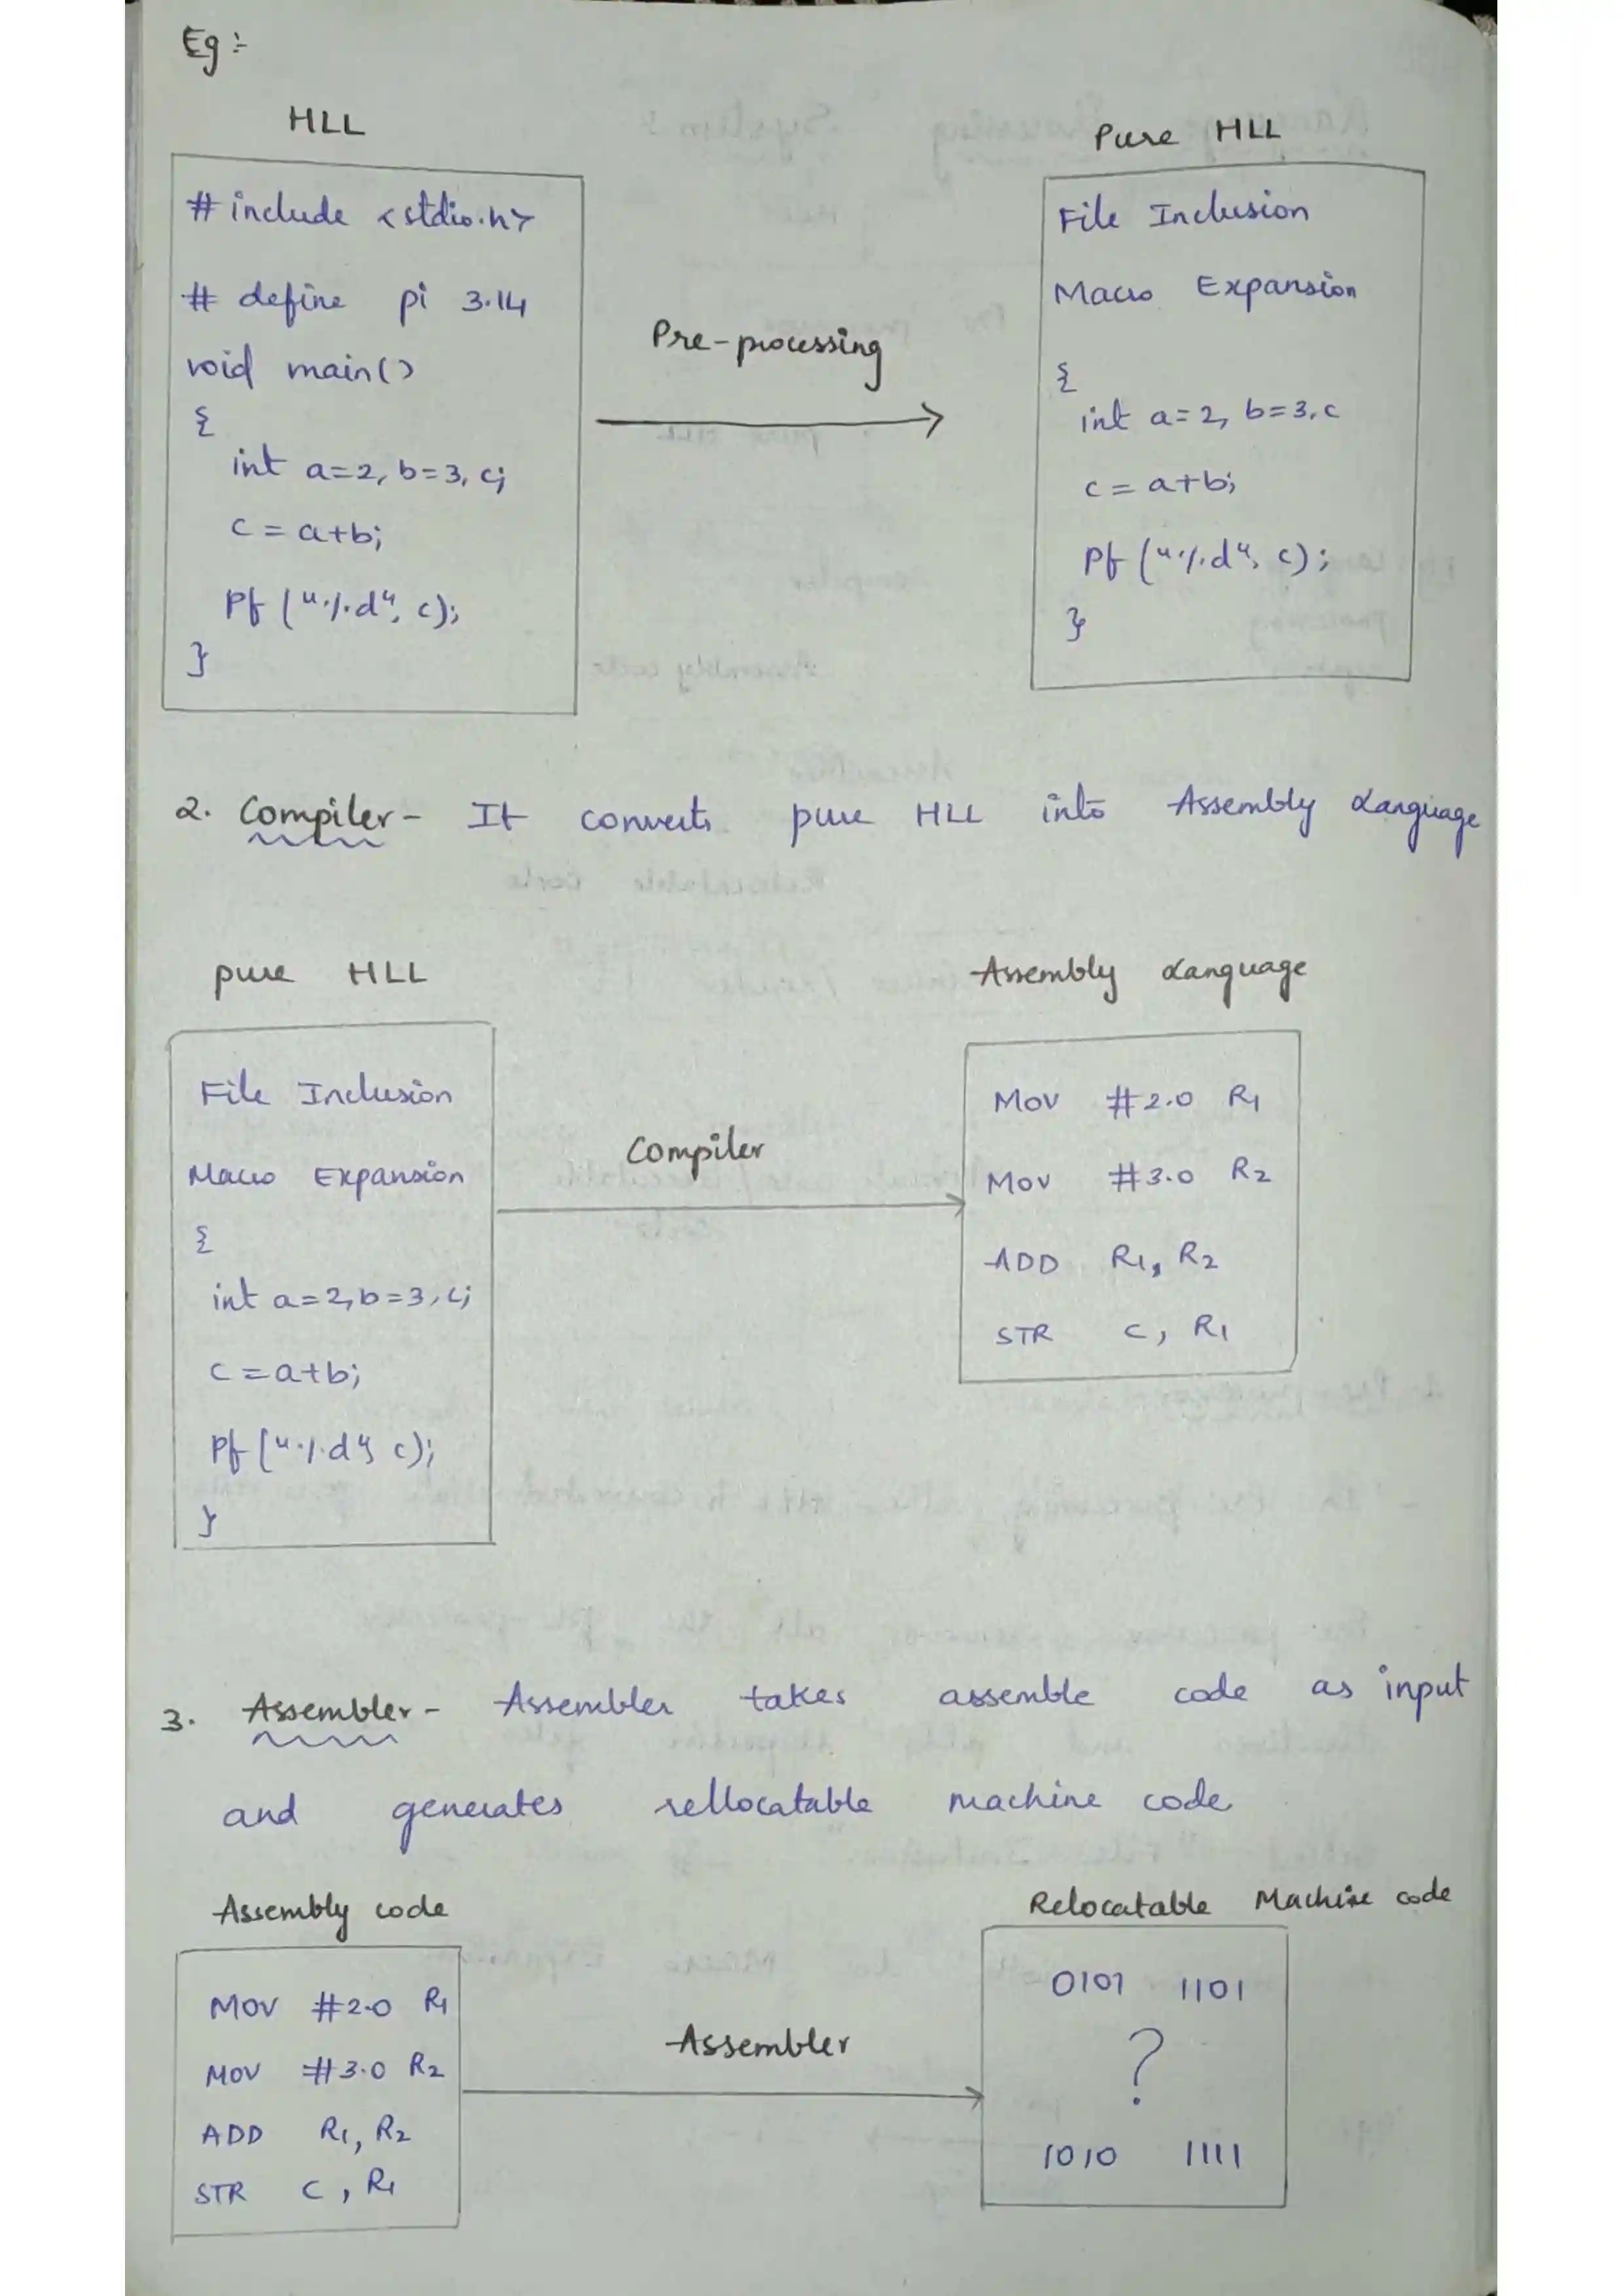 Eg :-
HLL
# include <stdio.h>
# define pi 3.14
void main()
{
int a=2, b=3, c;
c = a+b;
Pf ("%d", c);
}
Pre-processing
Pure HLL
File Inclusion
Macro Expansion
{
int a=2, b=3, c
c = a+b;
Pf ("%d", c);
}
2. Compiler - It converts pure HLL into Assembly Language
pure HLL
File Inclusion
Macro Expansion
{
int a=2, b=3, c;
c = a+b;
Pf ("%d", c);
}
Compiler
Assembly Language
MOV #2.0 R1
MOV #3.0 R2
ADD R1, R2
STR C, R1
3. Assembler - Assembler takes assemble code as input
and generates rellocatable machine code
Assembly code
MOV #2.0 R1
MOV #3.0 R2
ADD R1, R2
STR C, R1
Assembler
Relocatable Machine code
0101 1101
?
1010 1111